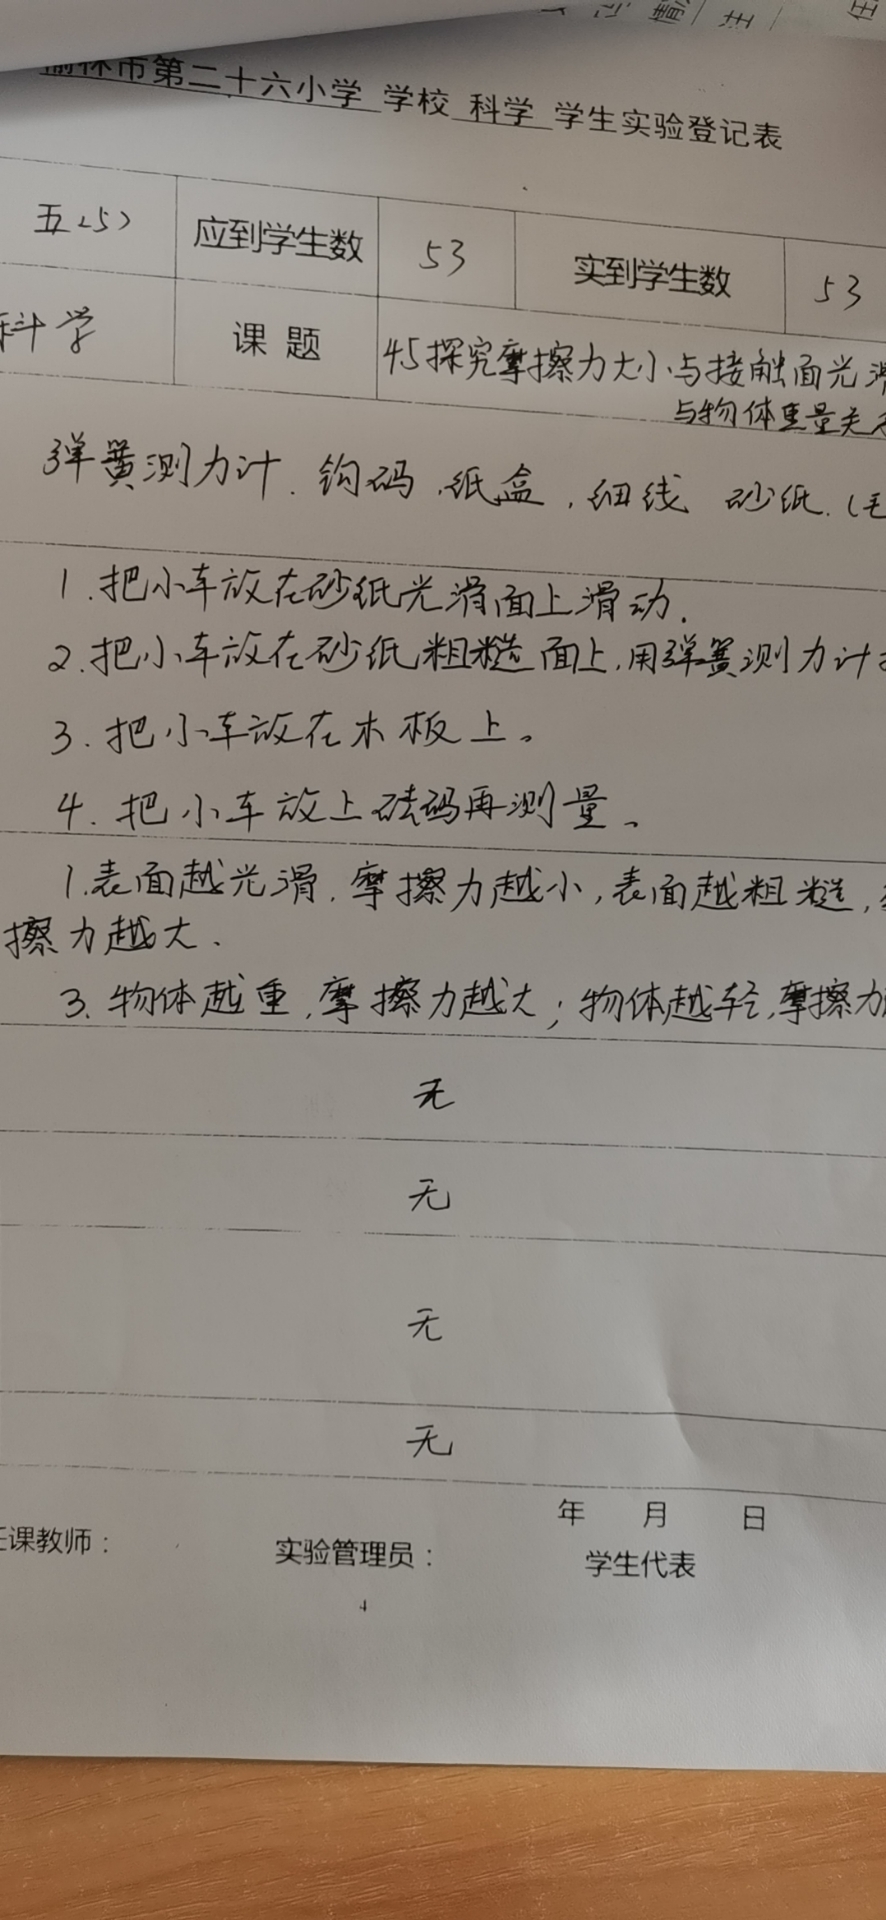 榆林市第二十六小学 学校 科学 学生实验登记表
五(5) 应到学生数 53 实到学生数 53
科学 课 题 45探究摩擦力大小与接触面光滑
与物体重量关
弹簧测力计、钩码、纸盒、细线 砂纸、(毛
1.把小车放在砂纸光滑面上滑动.
2.把小车放在砂纸粗糙面上,用弹簧测力计
3.把小车放在木板上。
4.把小车放上砝码再测量。
1.表面越光滑,摩擦力越小,表面越粗糙,
擦力越大.
3.物体越重,摩擦力越大;物体越轻,摩擦力
无
无
无
无
年 月 日
任课教师: 实验管理员: 学生代表
4